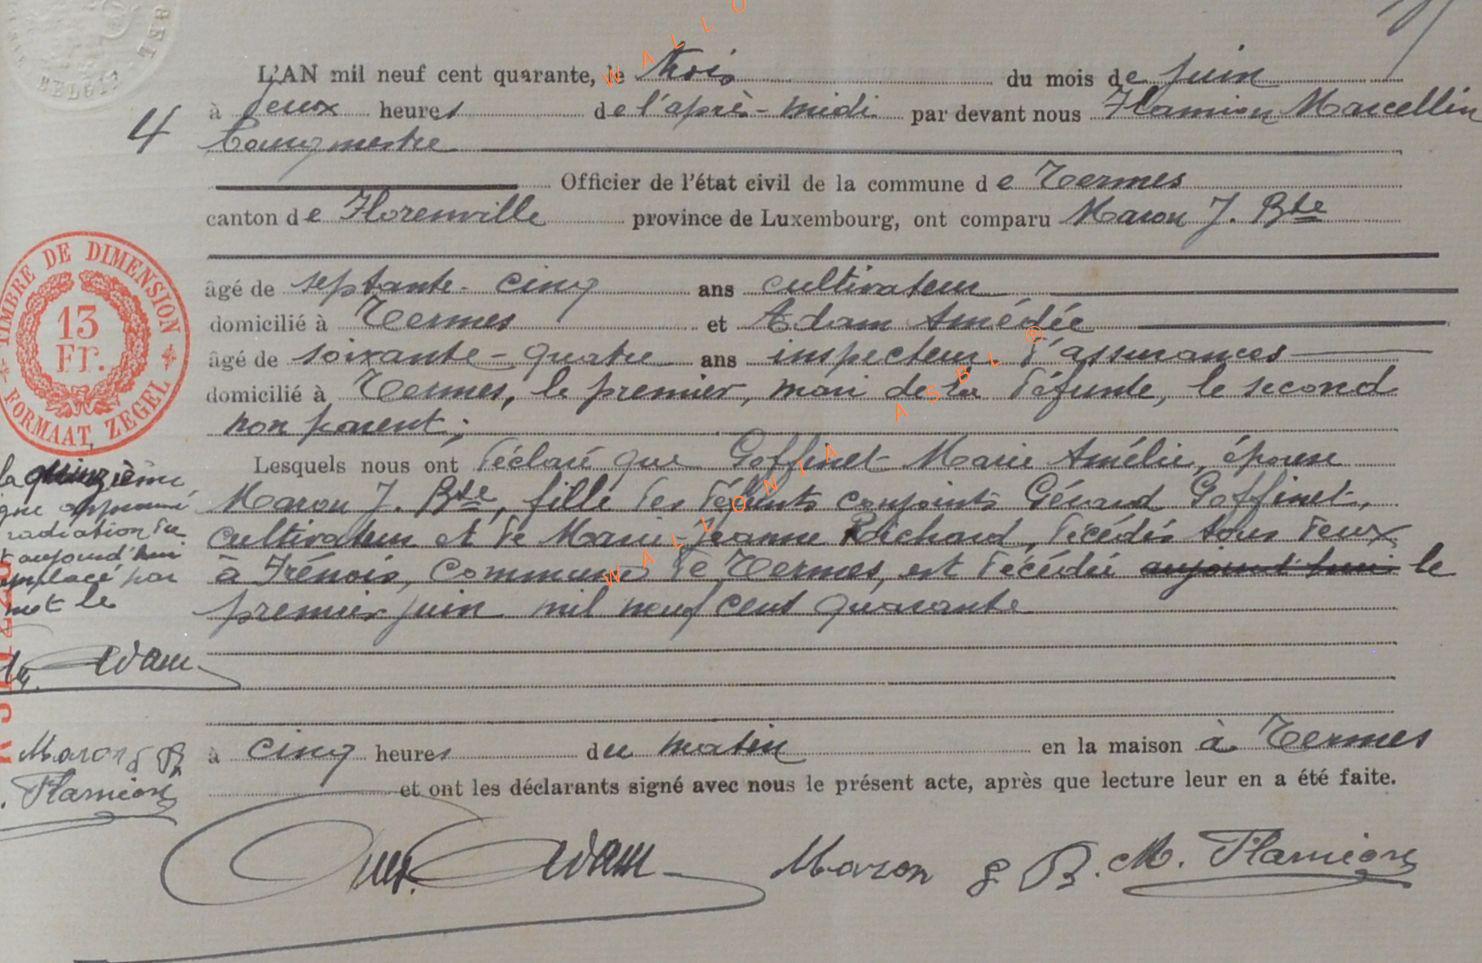 L'AN mil neuf cent quarante, le trois du mois de juin
4 à deux heures de l'après-midi par devant nous Flamion Marcellin
bourgmestre
Officier de l'état civil de la commune de Termes
canton de Florenville province de Luxembourg, ont comparu Maron J. Bte
âgé de septante-cinq ans cultivateur
domicilié à Termes et Adam Amédée
âgé de soixante-quatre ans inspecteur d'assurances
domicilié à Termes, le premier, mari de la défunte, le second
non parent;
Lesquels nous ont déclaré que Goffinet Marie Amélie, épouse
Maron J. Bte, fille des défunts conjoints Gérard Goffinet,
cultivateur et de Marie-Jeanne Richard, décédés tous deux
à Frénois, commune de Termes, est décédée aujourd'hui le
premier juin mil neuf cent quarante
à cinq heures du matin en la maison à Termes
et ont les déclarants signé avec nous le présent acte, après que lecture leur en a été faite.
Adam Maron J B. M. Flamion
la quinzième
gne approuvé
radiation du
t aujourd'hui
mplacé par
mot le
Adam
Maron J B
Flamion
TIMBRE DE DIMENSION
13
Fr.
FORMAAT ZEGEL
BELGI
WALLONIA ASBL ®
WALLO